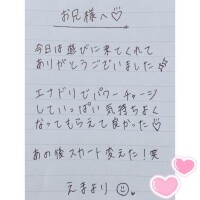 お兄様へ♡
今日は遊びに来てくれて
ありがとうございました☆
エナドリでパワーチャージ
していっぱい気持ちよく
なってもらえて良かった♡
あの後スカート変えた！笑
えまより☺♥